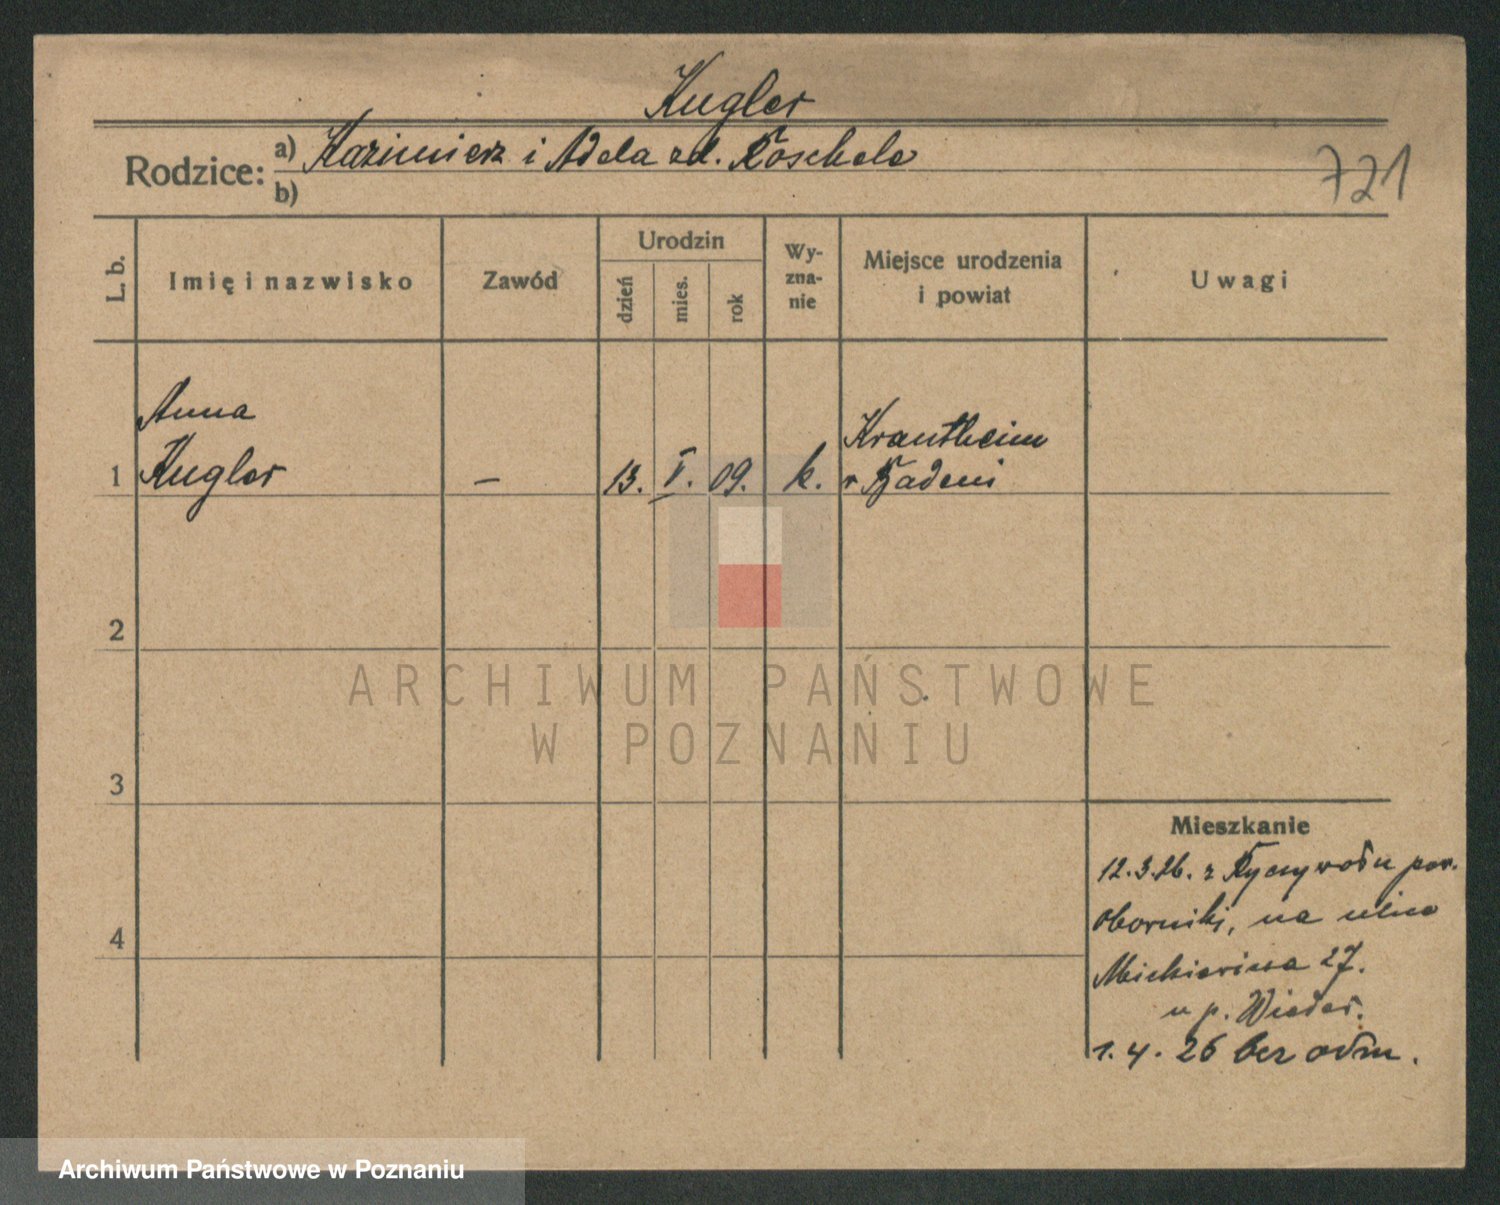 Kugler
Rodzice: a) Kazimierz i Adela zd. Koschele
b)
721
L. b.
Imię i nazwisko
Zawód
Urodzin
dzień
mies.
rok
Wy-
zna-
nie
Miejsce urodzenia
i powiat
Uwagi
Anna
1 Kugler – 13. V. 09. k.
Krautheim
v Badeni
2
3
4
Mieszkanie
12.3.26. z Ryczywołu pow.
Oborniki, na ulice
Mickiewicza 27.
u p. Wieder.
1. 4. 26 bez odm.
ARCHIWUM PAŃSTWOWE
W POZNANIU
Archiwum Państwowe w Poznaniu